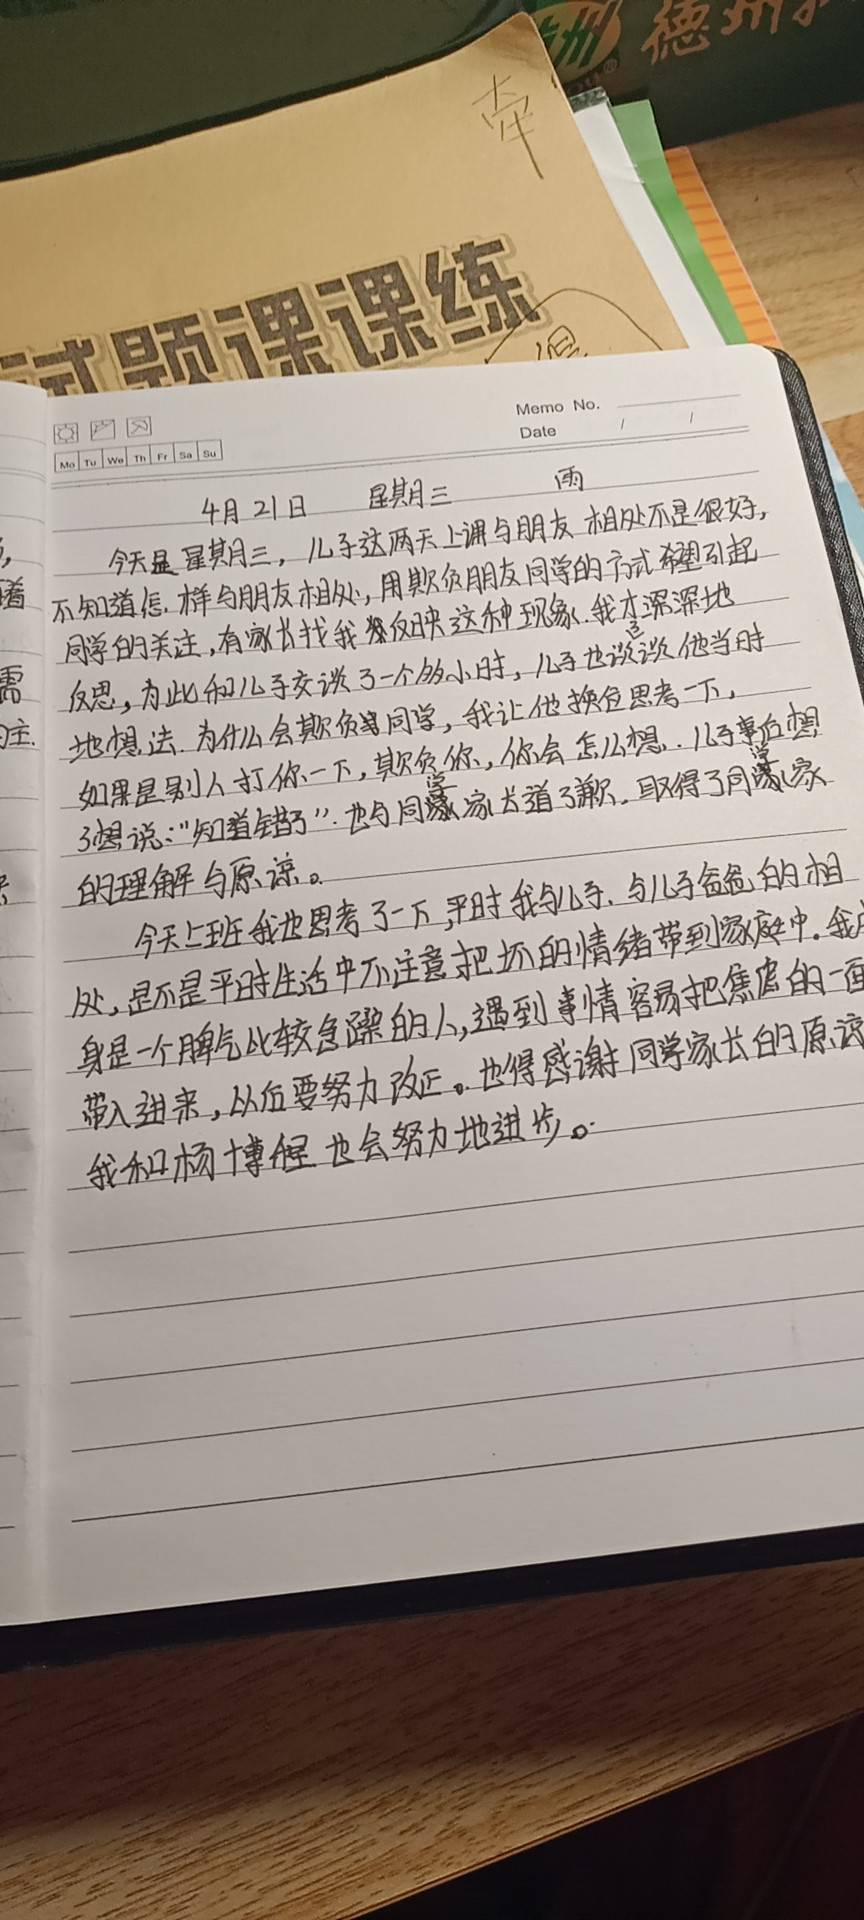 德州
牵
试题课课练
Memo No.
Date / /
Mo Tu We Th Fr Sa Su
4月21日 星期三 雨
今天是星期三，儿子这两天上课与朋友相处不是很好，
不知道怎样与朋友相处，用欺负朋友同学的方式希望引起
同学的关注，有家长找我反映这种现象.我才深深地
反思，为此和儿子交谈了一个多小时，儿子也谈谈他当时
地想法.为什么会欺负同学，我让他换位思考一下，
如果是别人打你一下，欺负你，你会怎么想.儿子事后想
了想说：“知道错了”.也与同学家长道了歉.取得了同学家
的理解与原谅。
今天上班我也思考了一下，平时我与儿子、与儿子爸爸的相
处，是不是平时生活中不注意把坏的情绪带到家庭中。我
身是一个脾气比较急躁的人，遇到事情容易把焦虑的一面
带入进来，以后要努力改正。也得感谢同学家长的原谅
我和杨博 也会努力地进步。